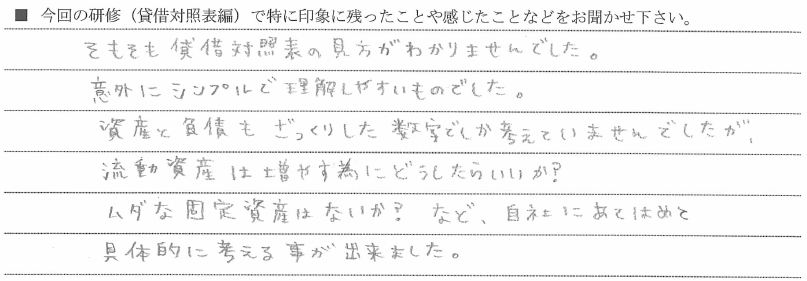 ■ 今回の研修（貸借対照表編）で特に印象に残ったことや感じたことなどをお聞かせ下さい。
そもそも貸借対照表の見方がわかりませんでした。
意外にシンプルで理解しやすいものでした。
資産と負債もざっくりした数字でしか考えていませんでしたが、
流動資産は増やす為にどうしたらいいか？
ムダな固定資産はないか？など、自社にあてはめて
具体的に考える事が出来ました。